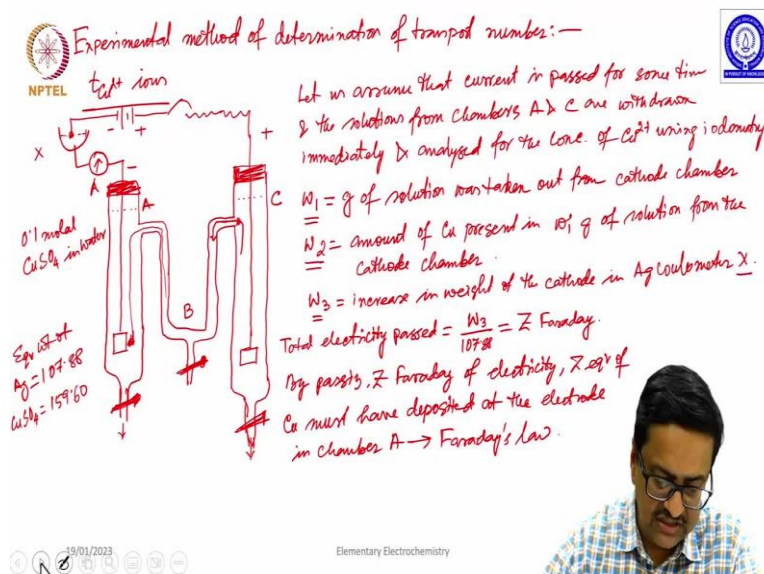 Experimental method of determination of transport number:—
NPTEL
t Cu²⁺ ions
Let us assume that current is passed for some time
& the solutions from chambers A & C are withdrawn
immediately & analysed for the conc. of Cu²⁺ using iodometry
W₁ = g of solution was taken out from cathode chamber
W₂ = amount of Cu present in W₁ g of solution from the
cathode chamber.
W₃ = increase in weight of the cathode in Ag coulometer X.
Total electricity passed = W₃/107.88 = Z Faraday.
By passing Z Faraday of electricity, Z eqv of
Cu must have deposited at the electrode
in chamber A → Faraday's law.
- +
X
- +
A
A
C
B
0.1 molal
CuSO₄ in water
Eqv wt of
Ag = 107.88
CuSO₄ = 159.60
19/01/2023
Elementary Electrochemistry